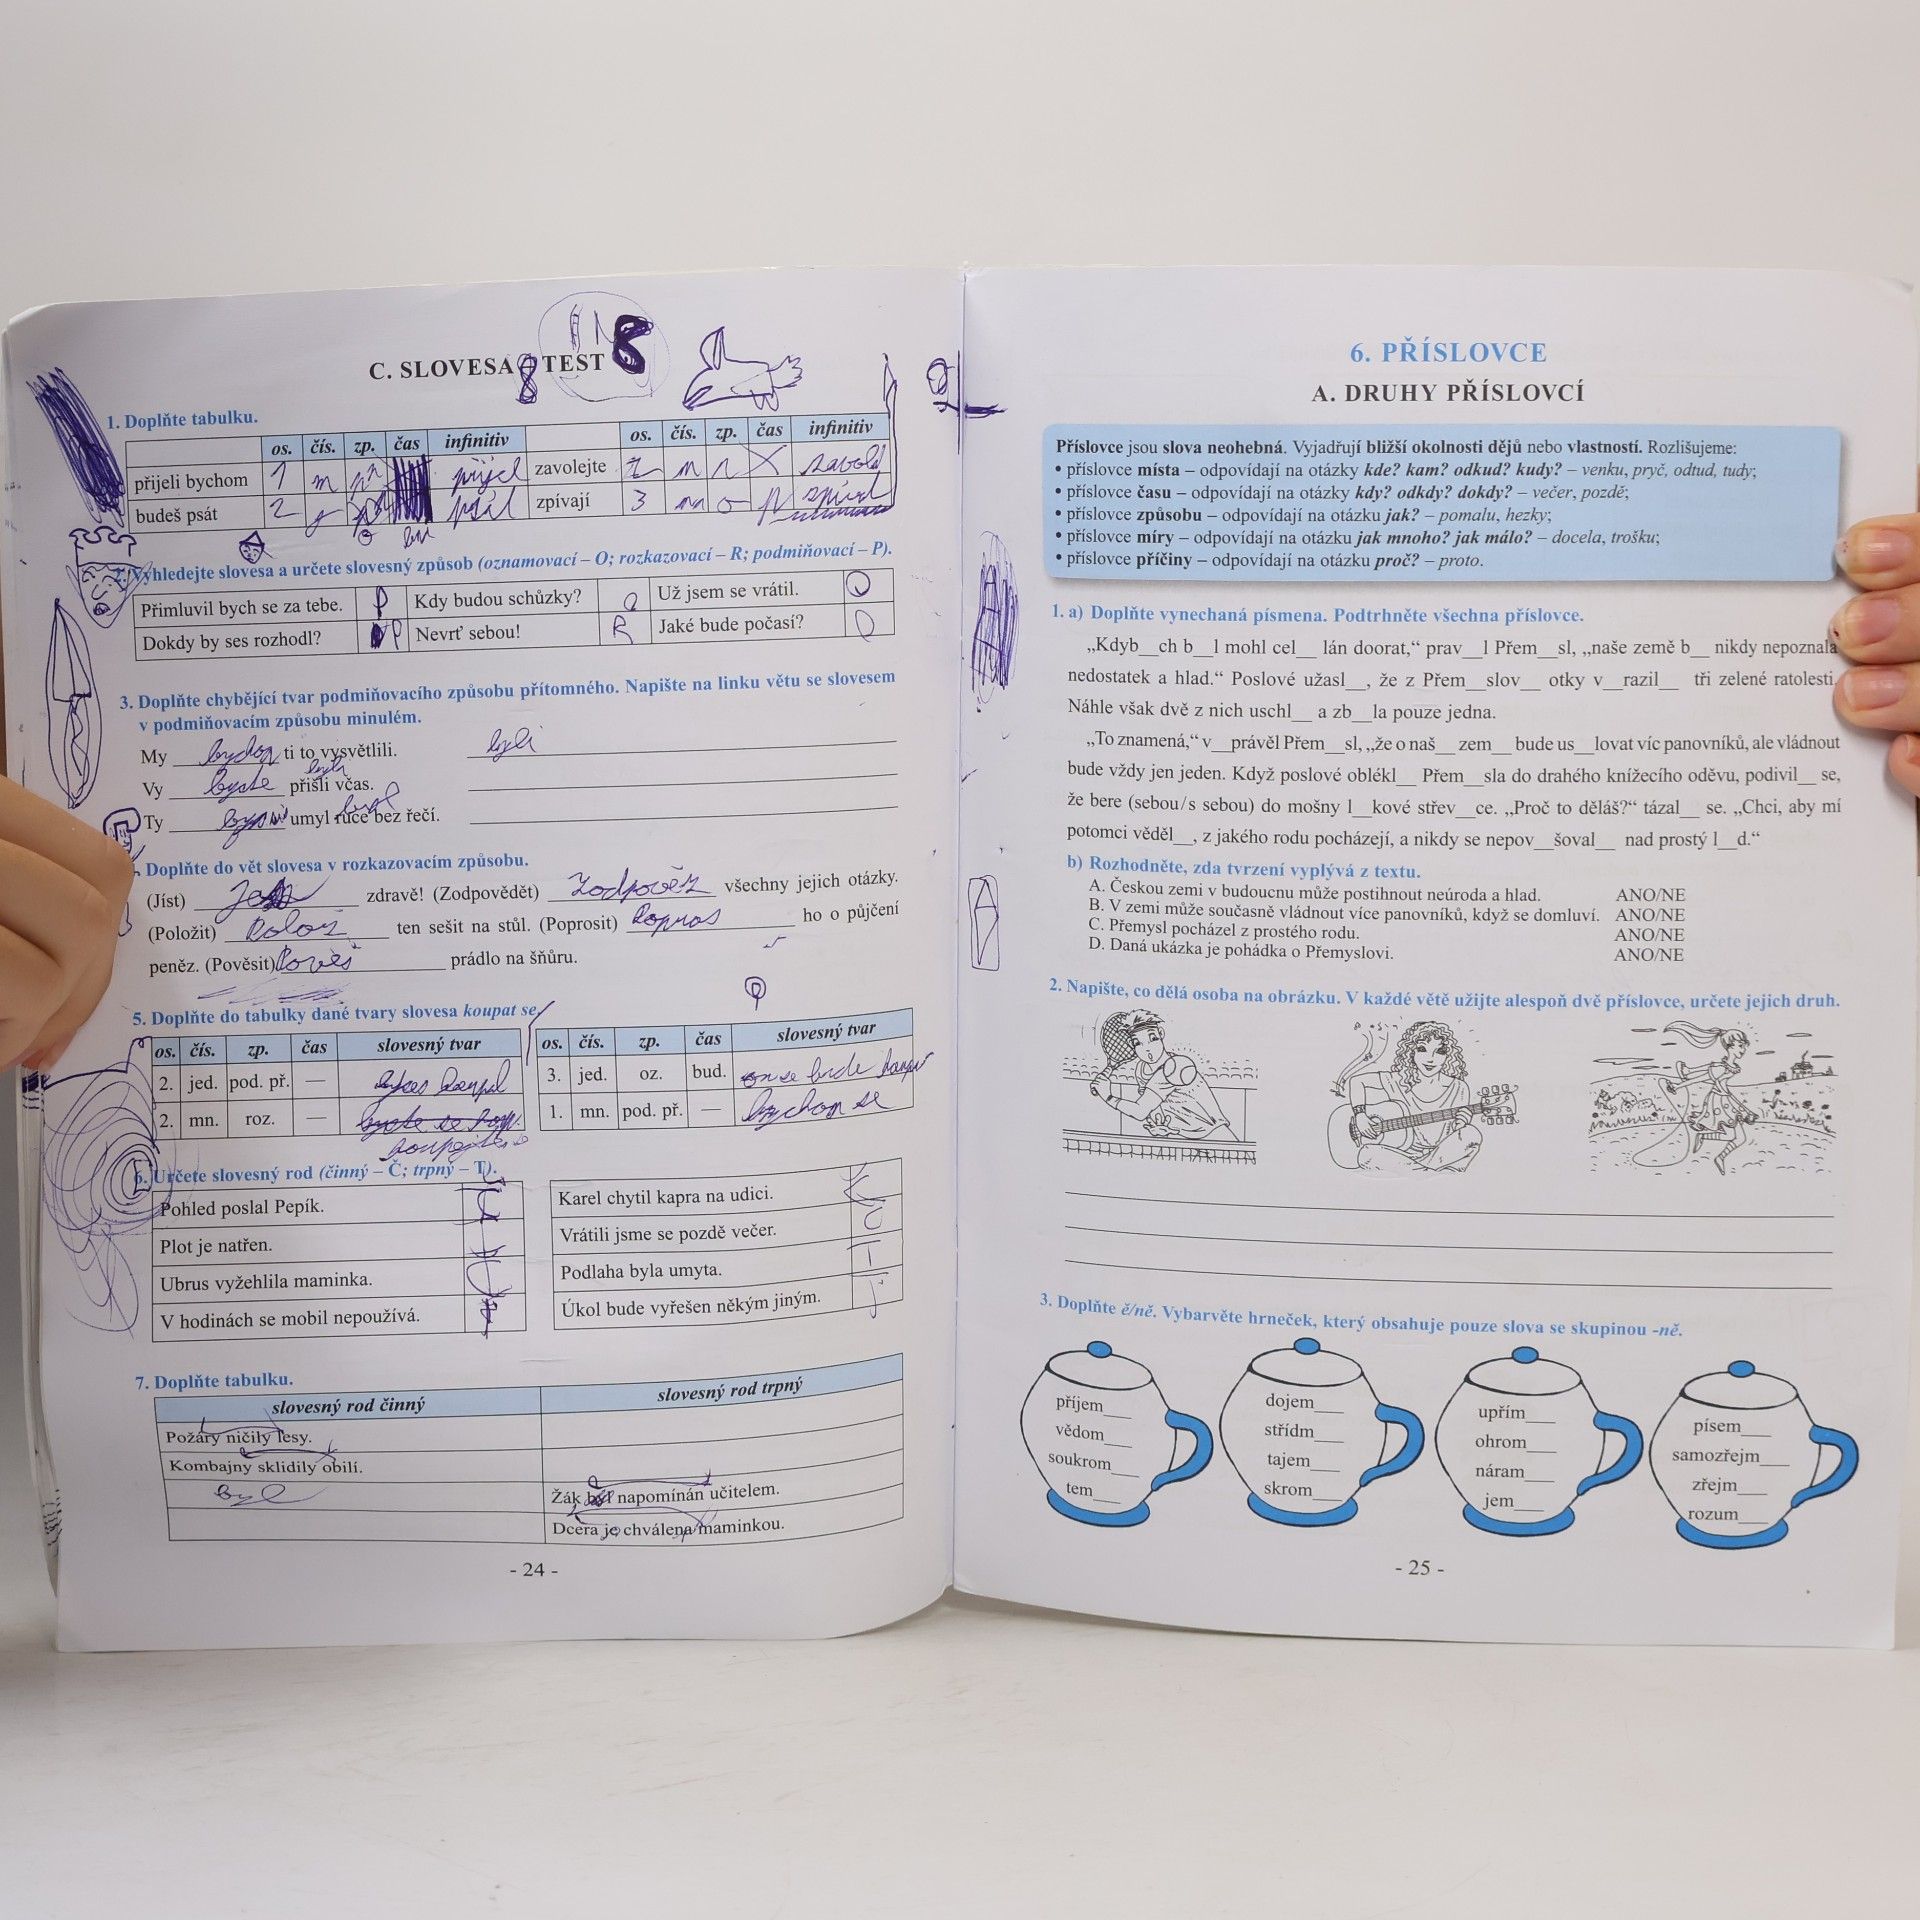 C. SLOVESA – TEST 8
8
1. Doplňte tabulku.
os. čís. zp. čas infinitiv os. čís. zp. čas infinitiv
přijeli bychom 1 m zavolejte m
budeš psát 2 zpívají 3 mn o
2. Vyhledejte slovesa a určete slovesný způsob (oznamovací – O; rozkazovací – R; podmiňovací – P).
Přimluvil bych se za tebe. P Kdy budou schůzky? O Už jsem se vrátil. O
Dokdy by ses rozhodl? P Nevrť sebou! R Jaké bude počasí? O
3. Doplňte chybějící tvar podmiňovacího způsobu přítomného. Napište na linku větu se slovesem
v podmiňovacím způsobu minulém.
My bychom ti to vysvětlili. byli
Vy byste přišli včas.
byli
Ty umyl ruce bez řečí.
4. Doplňte do vět slovesa v rozkazovacím způsobu.
(Jíst) zdravě! (Zodpovědět) Zodpověz všechny jejich otázky.
(Položit) Polož ten sešit na stůl. (Poprosit) Popros ho o půjčení
peněz. (Pověsit) Pověs prádlo na šňůru.
5. Doplňte do tabulky dané tvary slovesa koupat se.
os. čís. zp. čas slovesný tvar os. čís. zp. čas slovesný tvar
2. jed. pod. př. — 3. jed. oz. bud. on se bude
2. mn. roz. — byste se 1. mn. pod. př. — bychom se
6. Určete slovesný rod (činný – Č; trpný – T).
Pohled poslal Pepík. Karel chytil kapra na udici.
Plot je natřen. Vrátili jsme se pozdě večer. Č
Ubrus vyžehlila maminka. Podlaha byla umyta. T
V hodinách se mobil nepoužívá. T Úkol bude vyřešen někým jiným. T
7. Doplňte tabulku.
slovesný rod činný slovesný rod trpný
Požáry ničily lesy.
Kombajny sklidily obilí.
byl Žák byl napomínán učitelem.
Dcera je chválena maminkou.
- 24 -
6. PŘÍSLOVCE
A. DRUHY PŘÍSLOVCÍ
Příslovce jsou slova neohebná. Vyjadřují bližší okolnosti dějů nebo vlastností. Rozlišujeme:
• příslovce místa – odpovídají na otázky kde? kam? odkud? kudy? – venku, pryč, odtud, tudy;
• příslovce času – odpovídají na otázky kdy? odkdy? dokdy? – večer, pozdě;
• příslovce způsobu – odpovídají na otázku jak? – pomalu, hezky;
• příslovce míry – odpovídají na otázku jak mnoho? jak málo? – docela, trošku;
• příslovce příčiny – odpovídají na otázku proč? – proto.
1. a) Doplňte vynechaná písmena. Podtrhněte všechna příslovce.
„Kdyb__ch b__l mohl cel__ lán doorat,“ prav__l Přem__sl, „naše země b__ nikdy nepoznala
nedostatek a hlad.“ Poslové užasl__, že z Přem__slov__ otky v__razil__ tři zelené ratolesti.
Náhle však dvě z nich uschl__ a zb__la pouze jedna.
„To znamená,“ v__právěl Přem__sl, „že o naš__ zem__ bude us__lovat víc panovníků, ale vládnout
bude vždy jen jeden. Když poslové oblékl__ Přem__sla do drahého knížecího oděvu, podivil__ se,
že bere (sebou/s sebou) do mošny l__kové střev__ce. „Proč to děláš?“ tázal__ se. „Chci, aby mí
potomci věděl__, z jakého rodu pocházejí, a nikdy se nepov__šoval__ nad prostý l__d.“
b) Rozhodněte, zda tvrzení vyplývá z textu.
A. Českou zemi v budoucnu může postihnout neúroda a hlad. ANO/NE
B. V zemi může současně vládnout více panovníků, když se domluví. ANO/NE
C. Přemysl pocházel z prostého rodu. ANO/NE
D. Daná ukázka je pohádka o Přemyslovi. ANO/NE
2. Napište, co dělá osoba na obrázku. V každé větě užijte alespoň dvě příslovce, určete jejich druh.
3. Doplňte ě/ně. Vybarvěte hrneček, který obsahuje pouze slova se skupinou -ně.
příjem__
vědom__
soukrom__
tem__
dojem__
střídm__
tajem__
skrom__
upřím__
ohrom__
náram__
jem__
písem__
samozřejm__
zřejm__
rozum__
- 25 -